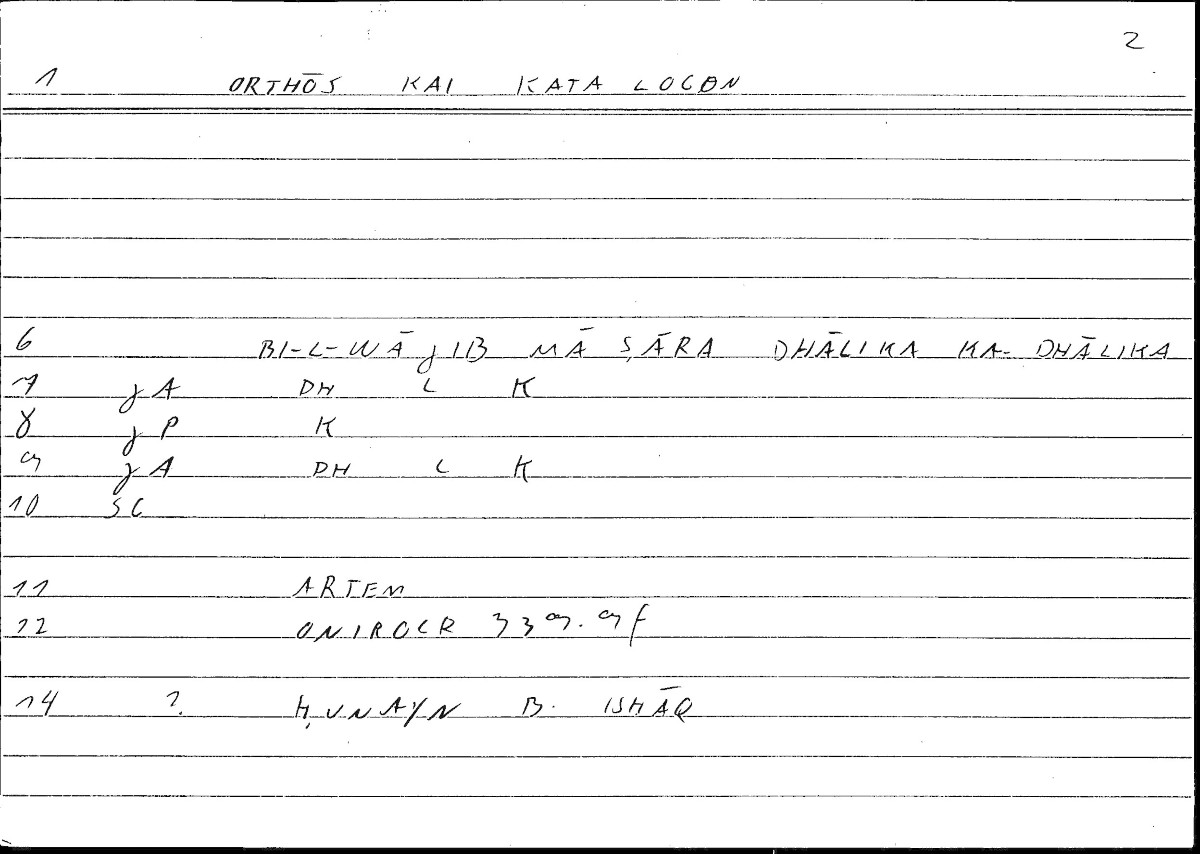 2
1 ORTHŌS KAI KATA LOGON
6 BI-L-WĀJIB MĀ ṢĀRA DHĀLIKA KA-DHĀLIKA
7 JA DH L K
8 JP K
9 JA DH L K
10 SC
11 ARTEM
12 ONIROCR 339.9f
14 ? ḤUNAYN B. ISḤĀQ